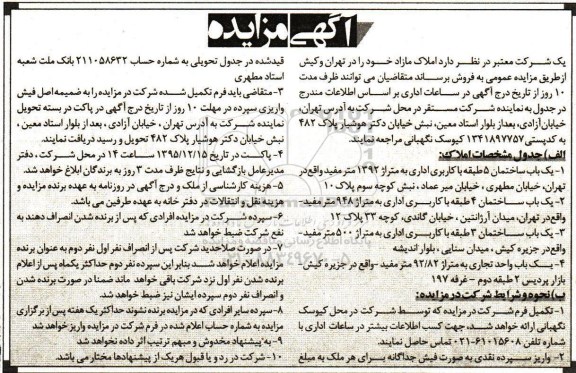 آگهی مزایده
یک شرکت معتبر در نظر دارد املاک مازاد خود را در تهران و کیش
از طریق مزایده عمومی به فروش برساند متقاضیان می توانند ظرف مدت
۱۰ روز از تاریخ درج آگهی در ساعات اداری بر اساس اطلاعات مندرج
در جدول به نماینده شرکت مستقر در محل شرکت به آدرس تهران،
خیابان آزادی، بعد از بلوار استاد معین، نبش خیابان دکتر هوشیار پلاک ۴۸۲
به کدپستی ۱۳۴۱۸۹۷۷۵۷ کیوسک نگهبانی مراجعه نمایند.
الف) جدول مشخصات املاک:
۱- یک باب ساختمان ۵ طبقه با کاربری اداری به متراژ ۱۳۹۲ متر مفید واقع در
تهران، خیابان مطهری، خیابان میر عماد، نبش کوچه سوم پلاک ۱۰
۲- یک باب ساختمان ۴ طبقه با کاربری اداری به متراژ ۹۴۸ متر مفید-
واقع در تهران، میدان آرژانتین، خیابان گاندی، کوچه ۲۳ پلاک ۱۲
۳- یک باب ساختمان ۳ طبقه با کاربری اداری به متراژ ۵۰۰ متر مفید-
واقع در جزیره کیش، میدان سنایی، بلوار اندیشه
۴- یک باب واحد تجاری به متراژ ۹۲/۸۷ متر مفید - واقع در جزیره کیش-
بازار پردیس ۲ طبقه دوم - غرفه ۱۹۷
ب) نحوه و شرایط شرکت در مزایده:
۱- تکمیل فرم شرکت در مزایده که توسط شرکت در محل کیوسک
نگهبانی ارائه خواهد شد، جهت کسب اطلاعات بیشتر در ساعات اداری با
شماره تلفن ۶۱۰۱۵۶۰۸-۰۲۱ تماس حاصل نمایند.
۲- واریز سپرده نقدی به صورت فیش جداگانه برای هر ملک به مبلغ
قیدشده در جدول تحویلی به شماره حساب ۲۱۱۰۵۸۶۳۲ بانک ملت شعبه
استاد مطهری
۳- متقاضی باید فرم تکمیل شده شرکت در مزایده را به ضمیمه اصل فیش
واریزی سپرده در مهلت ۱۰ روز از تاریخ درج آگهی در پاکت در بسته تحویل
نماینده شرکت به آدرس تهران، خیابان آزادی، بعد از بلوار استاد معین،
نبش خیابان دکتر هوشیار پلاک ۴۸۲ تحویل و رسید دریافت نمایند.
۴- پاکت در تاریخ ۱۳۹۵/۱۲/۱۵ ساعت ۱۴ در محل شرکت، دفتر
مدیرعامل بازگشایی و نتایج ظرف مدت ۳ روز به برندگان ابلاغ خواهد شد.
۵- هزینه کارشناسی از ملک و درج آگهی در روزنامه به عهده برنده مزایده و
هزینه نقل و انتقالات در دفترخانه به عهده طرفین می باشد.
۶- سپرده شرکت در مزایده افرادی که پس از برنده شدن انصراف دهند به
نفع شرکت ضبط خواهد شد
۷- در صورت صلاحدید شرکت پس از انصراف نفر اول نفر دوم به عنوان برنده
مزایده اعلام خواهد شد بنابر این سپرده نفر دوم حداکثر یکماه پس از اعلام
برنده شدن نفر اول نزد شرکت باقی خواهد ماند ضمنا در صورت برنده شدن
و انصراف نفر دوم سپرده ایشان نیز ضبط خواهد شد.
۸- سپرده سایر افرادی که در مزایده برنده نشوند حداکثر یک هفته پس از برگزاری
مزایده به شماره حساب اعلام شده در فرم شرکت در مزایده واریز خواهد شد
۹- به پیشنهاد مخدوش و مبهم ترتیب اثر داده نخواهد شد
۱۰- شرکت در رد و یا قبول هریک از پیشنهادها مختار می باشد.